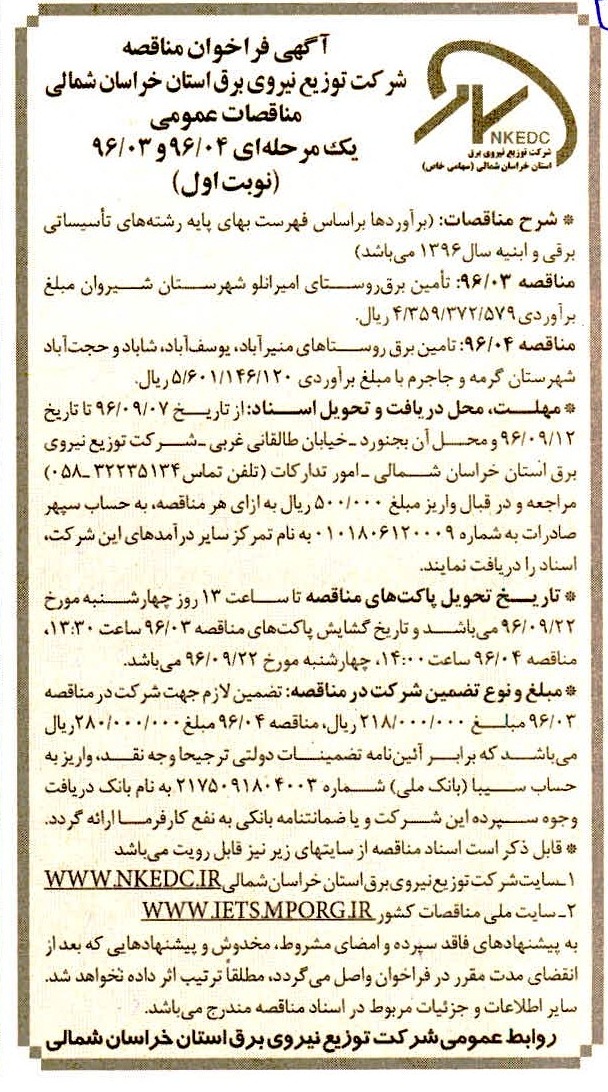 آگهی فراخوان مناقصه
شرکت توزیع نیروی برق استان خراسان شمالی
مناقصات عمومی
یک مرحله‌ای ۹۶/۰۴ و ۹۶/۰۳
(نوبت اول)
NKEDC
شرکت توزیع نیروی برق
استان خراسان شمالی (سهامی خاص)
* شرح مناقصات: (برآوردها براساس فهرست بهای پایه رشته‌های تأسیساتی
برقی و ابنیه سال ۱۳۹۶ می‌باشد)
مناقصه ۹۶/۰۳: تأمین برق روستای امیرانلو شهرستان شیروان مبلغ
برآوردی ۴/۳۵۹/۳۷۲/۵۷۹ ریال.
مناقصه ۹۶/۰۴: تامین برق روستاهای منیرآباد، یوسف‌آباد، شاباد و حجت‌آباد
شهرستان گرمه و جاجرم با مبلغ برآوردی ۵/۶۰۱/۱۴۶/۱۲۰ ریال.
* مهلت، محل دریافت و تحویل اسناد: از تاریخ ۹۶/۰۹/۰۷ تا تاریخ
۹۶/۰۹/۱۲ و محل آن بجنورد ـ خیابان طالقانی غربی ـ شرکت توزیع نیروی
برق استان خراسان شمالی ـ امور تدارکات (تلفن تماس ۳۲۲۳۵۱۳۴ ـ ۰۵۸)
مراجعه و در قبال واریز مبلغ ۵۰۰/۰۰۰ ریال به ازای هر مناقصه، به حساب سپهر
صادرات به شماره ۰۱۰۱۸۰۶۱۲۰۰۰۹ به نام تمرکز سایر درآمدهای این شرکت،
اسناد را دریافت نمایند.
* تاریخ تحویل پاکت‌های مناقصه تا ساعت ۱۳ روز چهارشنبه مورخ
۹۶/۰۹/۲۲ می‌باشد و تاریخ گشایش پاکت‌های مناقصه ۹۶/۰۳ ساعت ۱۳:۳۰،
مناقصه ۹۶/۰۴ ساعت ۱۴:۰۰، چهارشنبه مورخ ۹۶/۰۹/۲۲ می‌باشد.
* مبلغ و نوع تضمین شرکت در مناقصه: تضمین لازم جهت شرکت در مناقصه
۹۶/۰۳ مبلغ ۲۱۸/۰۰۰/۰۰۰ ریال، مناقصه ۹۶/۰۴ مبلغ ۲۸۰/۰۰۰/۰۰۰ ریال
می‌باشد که برابر آئین‌نامه تضمینات دولتی ترجیحا وجه نقد، واریز به
حساب سیبا (بانک ملی) شماره ۲۱۷۵۰۹۱۸۰۴۰۰۳ به نام بانک دریافت
وجوه سپرده این شرکت و یا ضمانتنامه بانکی به نفع کارفرما ارائه گردد.
* قابل ذکر است اسناد مناقصه از سایتهای زیر نیز قابل رویت می‌باشد
۱ـ سایت شرکت توزیع نیروی برق استان خراسان شمالی WWW.NKEDC.IR
۲ـ سایت ملی مناقصات کشور WWW.IETS.MPORG.IR
به پیشنهادهای فاقد سپرده و امضای مشروط، مخدوش و پیشنهادهایی که بعد از
انقضای مدت مقرر در فراخوان واصل می‌گردد، مطلقاً ترتیب اثر داده نخواهد شد.
سایر اطلاعات و جزئیات مربوط در اسناد مناقصه مندرج می‌باشد.
روابط عمومی شرکت توزیع نیروی برق استان خراسان شمالی